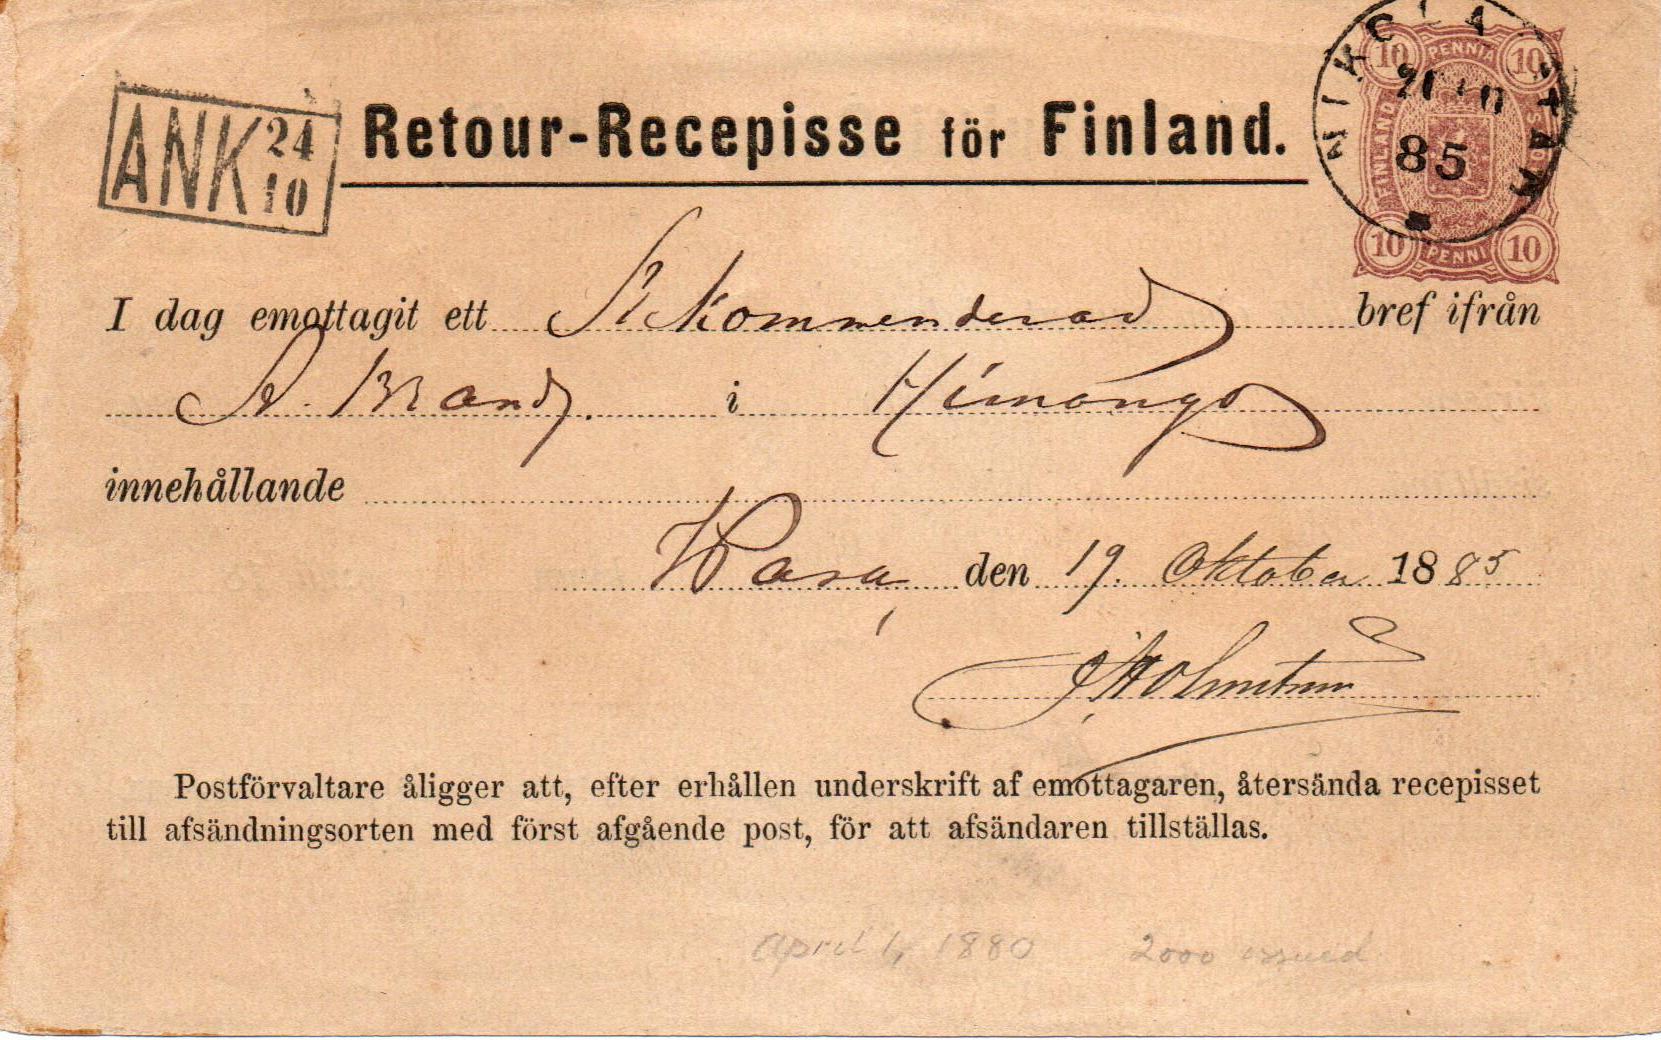 ANK 24 10
Retour-Recepisse för Finland.
NIKOLAISTAD
85
10 PENNIÄ 10
FINLAND
10 PENNI 10
I dag emottagit ett Rekommenderad bref ifrån
A. Brand. i Himango
innehållande
Wasa, den 19. Oktober 1885
Holmström
Postförvaltare åligger att, efter erhållen underskrift af emottagaren, återsända recepisset
till afsändningsorten med först afgående post, för att afsändaren tillställas.
April 1, 1880 2000 issued